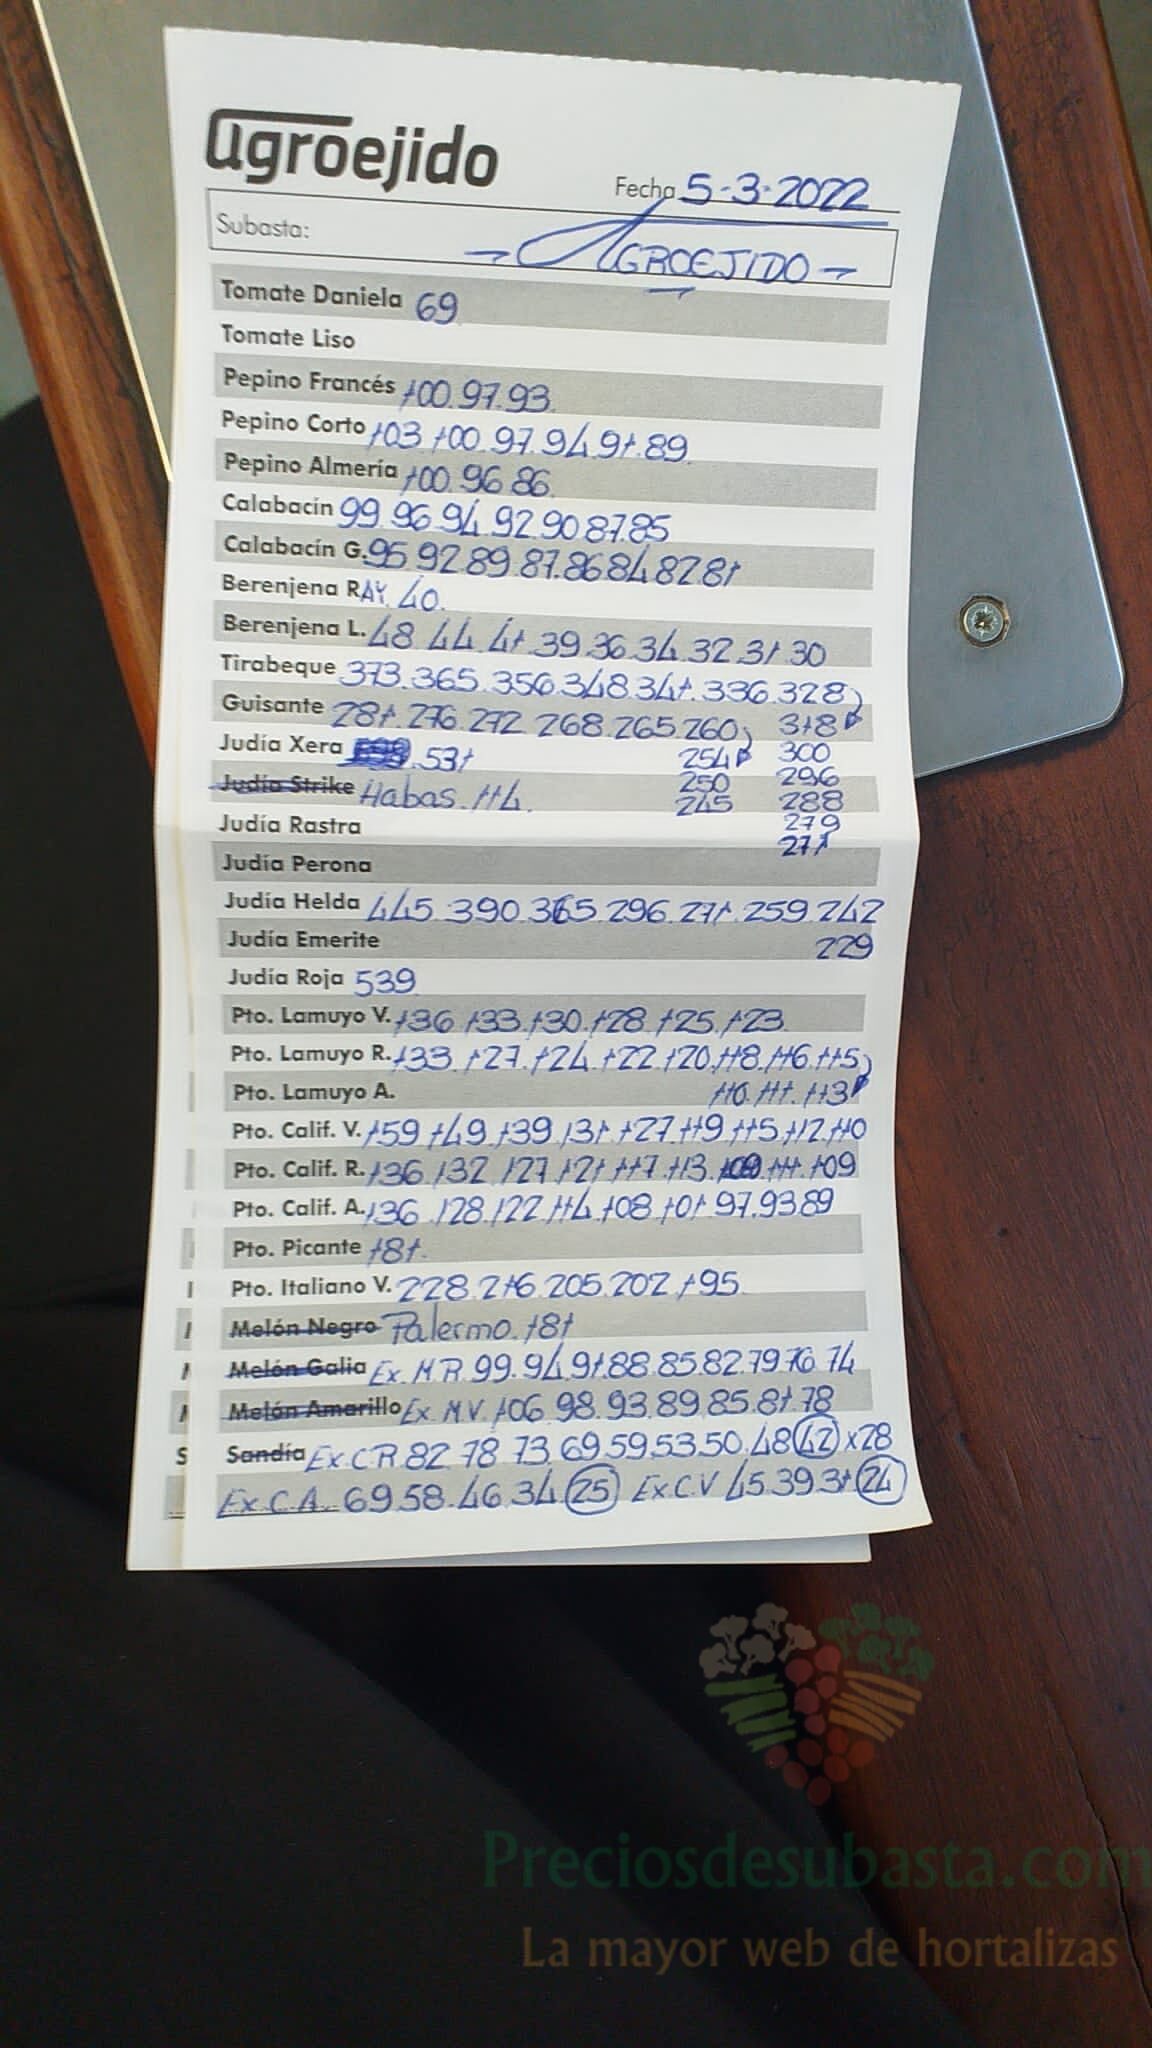 agroejido
Fecha 5-3-2022
Subasta: AGROEJIDO
Tomate Daniela 69
Tomate Liso
Pepino Francés 100.97.93.
Pepino Corto 103 100.97.94.91.89.
Pepino Almería 100.96 86.
Calabacín 99.96.94.92.90.87.85
Calabacín G. 95.92.89.87.86.84.82.81
Berenjena RAY. 40.
Berenjena L. 48 44 41 39.36.34.32.31 30
Tirabeque 373.365.356.348.341.336.328
Guisante 281.276.272 268.265.260 318
Judía Xera .531 254 300
Judía Strike Habas. 114. 250 296
245 288
Judía Rastra 279
271
Judía Perona
Judía Helda 445.390.365.296.271.259.242
Judía Emerite 229
Judía Roja 539
Pto. Lamuyo V. 136 133 130 128 125 123
Pto. Lamuyo R. 133 127 124 122 120 118 116 115
Pto. Lamuyo A. 110.111.113
Pto. Calif. V. 159 149 139 131 127 119 115 112 110
Pto. Calif. R. 136 132 127 121 117 113. 111 109
Pto. Calif. A. 136 128 122 114 108 101 97.93.89
Pto. Picante 181.
Pto. Italiano V. 228.216.205.202 195
Melón Negro Palermo. 181
Melón Galia Ex. M.R. 99.94.91.88.85.82.79.76.74
Melón Amarillo Ex. M.V. 106 98.93.89.85.81.78
Sandía Ex C.R. 82 78 73 69.59.53.50.48 42 x28
Ex. C.A. 69.58.46.34 25 Ex.C.V 45.39.31 24
Preciosdesubasta.com
La mayor web de hortalizas